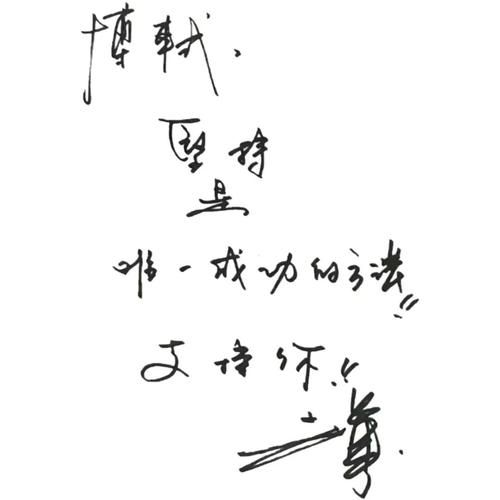 博轼、
坚持
是
唯一成功的方法!!
支持你!!